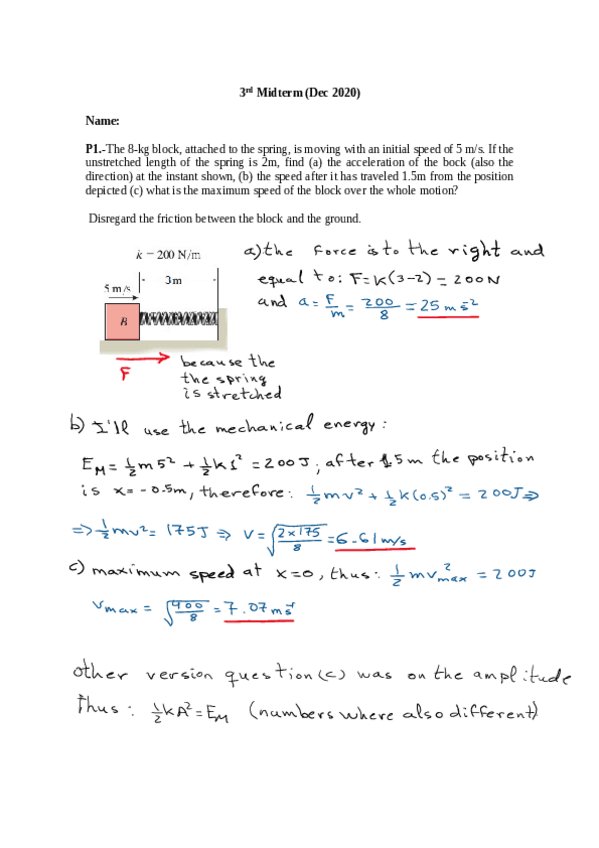 3rd Midterm (Dec 2020)
Name:
P1.-The 8-kg block, attached to the spring, is moving with an initial speed of 5 m/s. If the
unstretched length of the spring is 2m, find (a) the acceleration of the bock (also the
direction) at the instant shown, (b) the speed after it has traveled 1.5m from the position
depicted (c) what is the maximum speed of the block over the whole motion?
Disregard the friction between the block and the ground.
k = 200 N/m
3m
5 m/s
B
F
because the
the spring
is stretched
a) the force is to the right and
equal to: F=K(3-2) = 200N
and a = F/m = 200/8 = 25 ms⁻²
b) I'll use the mechanical energy:
E_M = ½m5² + ½k1² = 200J; after 1.5m the position
is x= -0.5m, therefore: ½mv² + ½k(0.5)² = 200J ⇒
⇒ ½mv² = 175J ⇒ v = √(2x175/8) = 6.61 m/s
c) maximum speed at x=0, thus: ½mv²max = 200J
Vmax = √(400/8) = 7.07 ms⁻¹
other version question (c) was on the amplitude
Thus: ½kA² = E_M (numbers where also different)